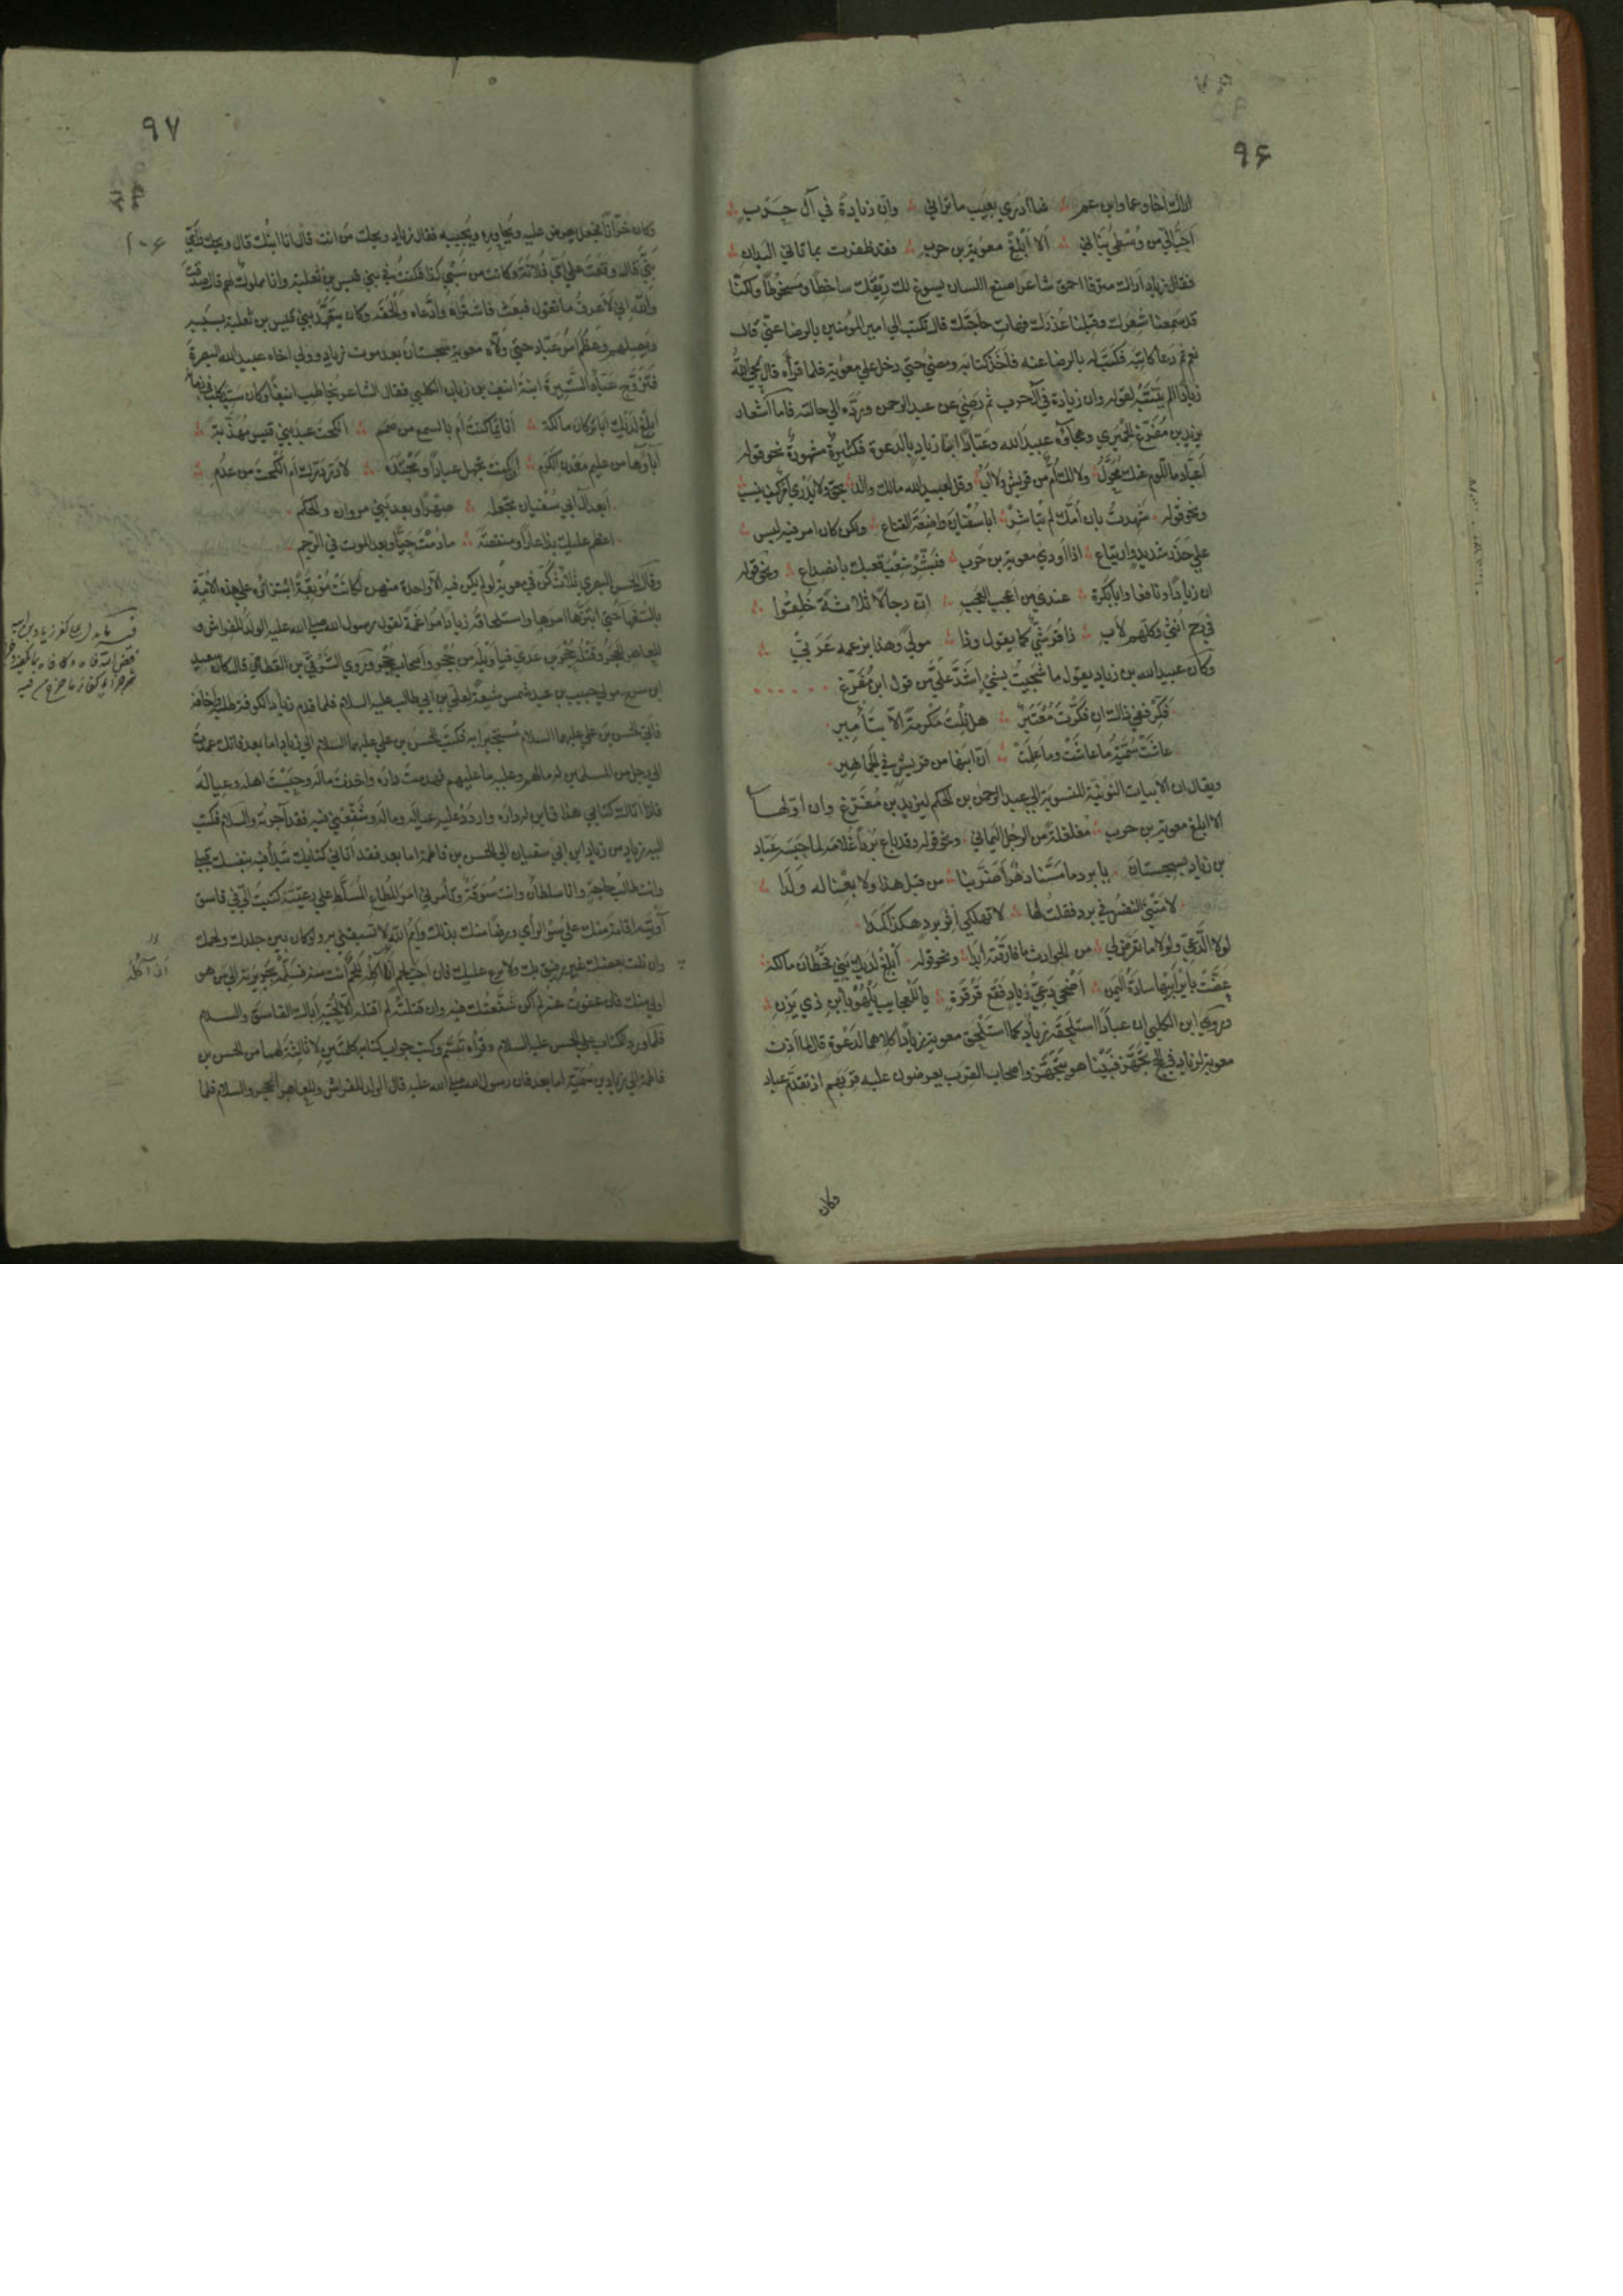 ٩۶
اراك اخا وعما وابن عم ∴ فما ادري بعيب ما تراني ∴ وان زيادة في آل حرب ∴
احب الي من وسطي بناني ∴ الا ابلغ معوية بن حرب ∴ فقد ظفرت بما تاتي اليدان ∴
فقال زياد اراك احمق شاعرا صنع اللسان يسوغ لك ريقك ساخطا ومسخوطا ولكنا
قد سمعنا شعرك وقبلنا عذرك فهات حاجتك قال تكتب الي امير المؤمنين بالرضا عني قال
نعم ثم دعا كاتبه فكتب له بالرضا عنه فاخذ كتابه ومضي حتي دخل علي معوية فلما قرأه قال لحي الله
زيادا لم يتنبه لقوله وان زيادة في آل حرب ثم رضي عن عبد الرحمن ورده الي حالته فاما اشعار
يزيد بن مفرغ الحميري وهجاؤه عبيد الله وعبادا ابنا زياد بالدعوة فكثيرة مشهورة نحو قوله
اعباد ما للؤم عنك محول ∴ ولا لك ام من قريش ولا اب ∴ وقل لعبيد الله مالك والد ∴ بحق ولا يدري امرؤ كيف ينسب ∴
ونحو قوله ۰ شهدت بان امك لم تباشر ∴ ابا سفيان واضعة القناع ∴ ولكن كان امر فيه لبس ∴
علي حذر شديد وارتياع ∴ اذا اودي معوية بن حرب ∴ فبشر شعب قعبك بانصداع ∴ ونحو قوله
ان زيادا ونافعا وابا بكرة ∴ عندي من اعجب العجب ∴ ان رجالا ثلاثة خلقوا ∴
في رحم انثي وكلهم لاب ∴ ذا قرشي كما يقول وذا ∴ مولي وهذا بزعمه عربي ∴
وكان عبيد الله بن زياد يقول ما شجيت بشيء اشد علي من قول ابن مفرغ
فكر ففي ذاك ان فكرت معتبر ∴ هل نلت مكرمة الا بتأمير
عاشت سمية ما عاشت وما علمت ∴ ان ابنها من قريش في الجماهير
ويقال ان الابيات النونية المنسوبة الي عبد الرحمن بن الحكم ليزيد بن مفرغ وان اولها
الا ابلغ معوية بن حرب ∴ مغلغلة من الرجل اليماني ونحو قوله وقد باع بردا غلامه لما حبسه عباد
بن زياد بسجستان ۰ يا برد ما مسنا دهر اضر بنا ∴ من قبل هذا ولا بعنا له ولدا ∴
لامتني النفس في برد فقلت لها ∴ لا تهلكي اثر برد هكذا كمدا
لولا الدعي ولولا ما تعرض لي ∴ من الحوادث ما فارقته ابدا ∴ ونحو قوله ۰ ابلغ لديك بني قحطان مالكة ∴
عضت باير ابيها سادة اليمن ∴ اضحي دعي زياد فقع قرقرة ∴ يا للعجايب يلهو بابن ذي يزن ∴
وروي ابن الكلبي ان عبادا استلحقه زياد كما استلحق معوية زيادا كلاهما لدعوة قال لما اذن
معوية لزياد في الحج تجهز فبينا هو يتجهز واصحاب القرب يعرضون عليه قربهم اذ تقدم عباد
وكان
٩٧
١٠۶
وكان خرازا فجعل يعرض عليه ويحاوره ويجيبه فقال زياد ويحك من انت قال انا ابنك قال ويحك واي
بني قال وقعت علي امي فلانة وكانت من سبي كذا فكنت في بني قيس بن ثعلبة وانا مملوك لهم قال صدقت
والله اني لاعرف ما تقول فبعث فاشتراه وادعاه والحقه وكان يتعهد بني قيس بن ثعلبة بسببه
ويصلهم وعظم امر عباد حتي ولاه معوية سجستان بعد موت زياد وولي اخاه عبيد الله البصرة
فتزوج عباد الستيرة ابنة انيف بن زياد الكلبي فقال الشاعر يخاطب انيفا وكان سيد كلب في زمانه
ابلغ لديك ابا تركان مالكة ∴ انائما كنت ام بالسمع من صمم ∴ انكحت عبد بني قيس مهذبة ∴
آباؤها من عليم معدن الكرم ∴ اكنت تجهل عبادا ومحتده ∴ لا در درك ام انكحت من عدم ∴
ابعد آل ابي سفيان تجعله ∴ صهرا وبعد بني مروان والحكم
اعظم عليك بذا عارا ومنقصة ∴ ما دمت حيا وبعد الموت في الرجم
وقال الحسن البصري ثلاث كن في معوية لو لم يكن فيه الا واحدة منهن لكانت موبقة انتزاؤه علي هذه الامة
بالسفهآ حتي ابتزها امرها واستلحاقه زيادا مراغمة لقول رسول الله صلي الله عليه الولد للفراش و
للعاهر الحجر وقتله حجر بن عدي فيا ويله من حجر واصحاب حجر وروي الشرقي بن القطامي قال كان سعيد
ابن سرح مولي حبيب بن عبد شمس شيعة لعلي بن ابي طالب عليه السلام فلما قدم زياد الكوفة طلبه واخافه
فاتي الحسن بن علي عليهما السلام مستجيرا به فكتب الحسن بن علي عليهما السلام الي زياد اما بعد فانك عمدت
الي رجل من المسلمين له ما لهم وعليه ما عليهم فهدمت داره واخذت ماله وحبست اهله وعياله
فاذا اتاك كتابي هذا فابن له داره واردد عليه عياله وماله وشفعني فيه فقد آجرته والسلام فكتب
اليه زياد من زياد ابن ابي سفيان الي الحسن بن فاطمة اما بعد فقد اتاني كتابك تبدأ فيه بنفسك قبلي
وانت طالب حاجة وانا سلطان وانت سوقة وتأمرني امر المطاع المسلط علي رعيته كتبت الي في فاسق
آويته اقامة منك علي سؤ الرأي ورضا منك بذلك وايم الله لا تسبقني به ولو كان بين جلدك ولحمك
وان نلت بعضك غير رفيق بك ولا مرع عليك فان احب لحم الي ان آكله للحم انت منه فسلمه بجريرته الي من هو
اولي منك فان عفوت عنه لم اكن شفعتك فيه وان قتلته لم اقتله الا لحبه اباك الفاسق والسلام
فلما ورد الكتاب علي الحسن عليه السلام قرأه وتبسم وكتب جواب كتابه كلمتين لا ثالثة لهما من الحسن بن
فاطمة الي زياد بن سمية اما بعد فان رسول الله صلي الله عليه قال الولد للفراش وللعاهر الحجر والسلام فلما
ان آكله